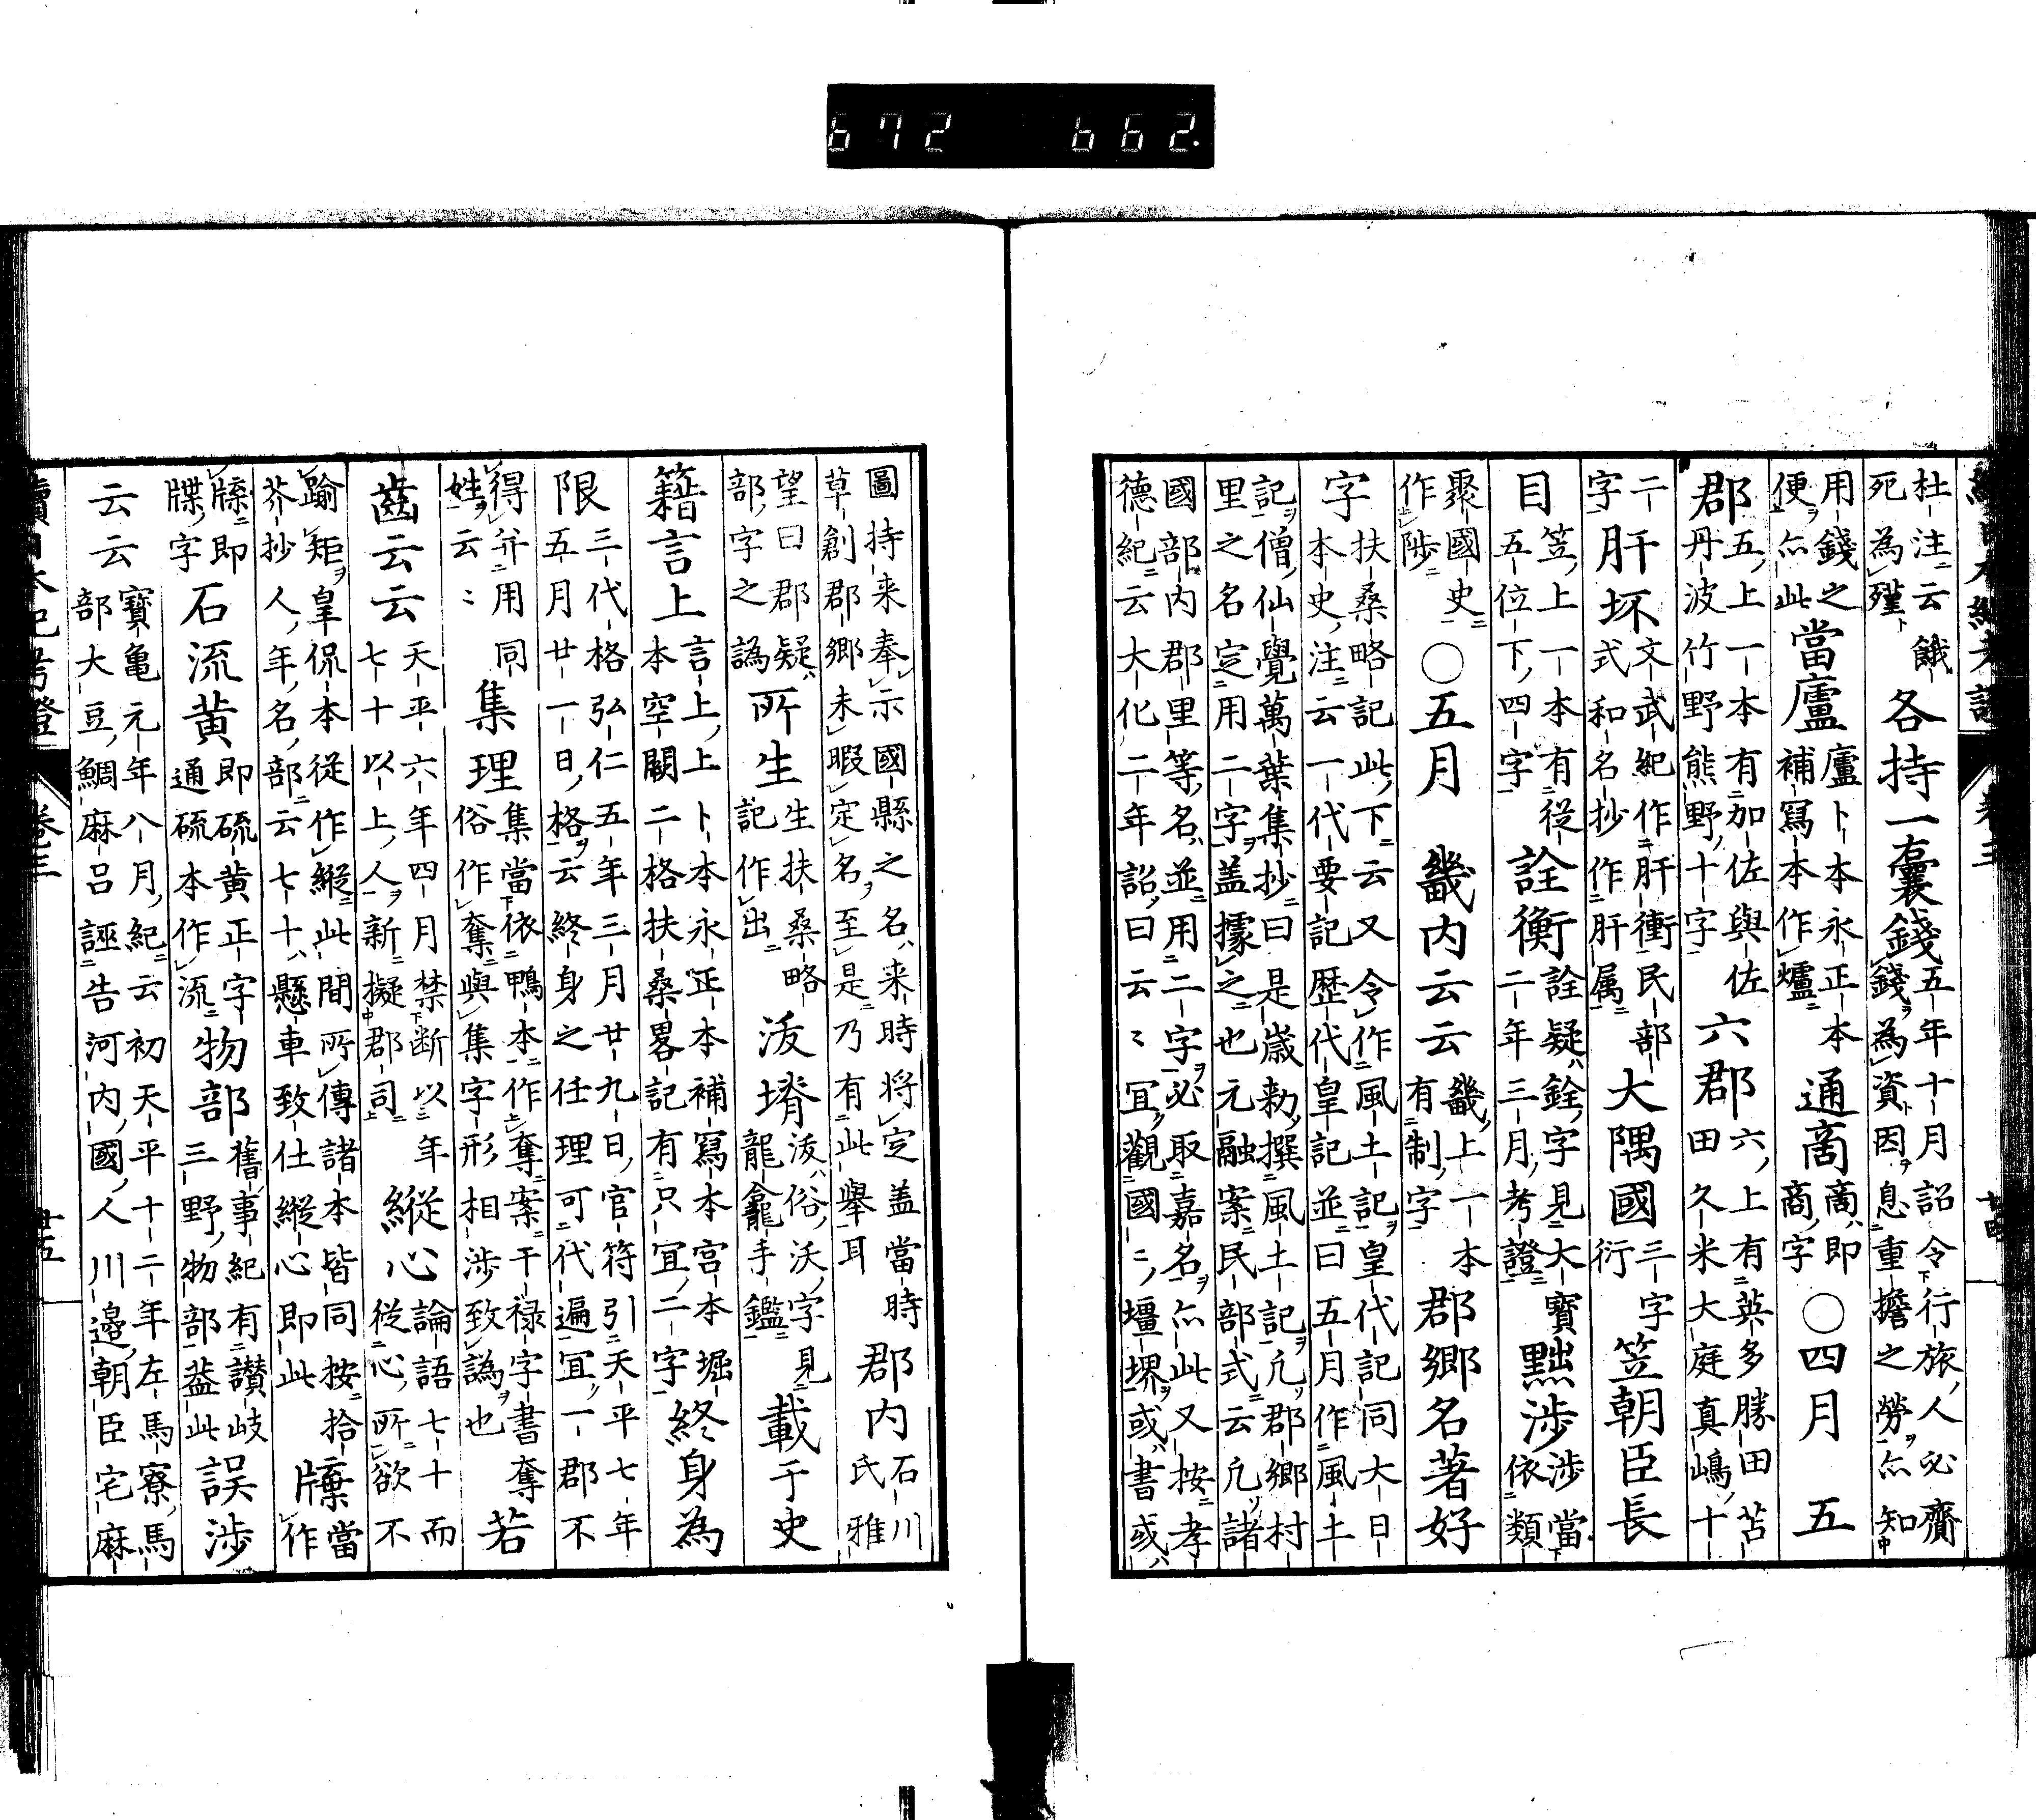 杜注云餓死為殣各持一囊錢五年十月詔令行旅人必齎錢為資因息重擔之勞亦知
用錢之便亦此當廬廬卜本永正本補寫本作爐通啇啇即商字〇四月五
郡五上一本有加佐與佐丹波竹野熊野十字六郡六上有英多勝田苫田久米大庭真嶋十
二字肝坏文武紀作肝衝民部式和名抄作肝属大隅國三字衍笠朝臣長
目笠上一本有從五位下四字詮衡詮疑銓字見大寶二年三月考證黜涉涉當依類
聚國史作陟〇五月畿内云云畿上一本有制字郡郷名著好
字扶桑略記此下云又令作風土記皇代記同大日本史注云一代要記歴代皇記並曰五月作風土
記僧仙覺萬葉集抄曰是歳勅撰風土記凡郡郷村里之名定用二字盖據之也元融案民部式云凡諸
國部内郡里等名並用二字必取嘉名亦此又按孝德紀云大化二年詔曰云〻宜觀國〻壃堺或書或
圖持来奉示國縣之名来時将定盖當時草創郡郷未暇定名至是乃有此舉耳郡内石川氏雅
望曰郡疑部字之譌所生生扶桑略記作出沷塉沷俗沃字見龍龕手鑑載于史
籍言上言上上卜本永正本補寫本宮本堀本空闕二格扶桑畧記有只宜二字終身為
限三代格弘仁五年三月廿九日官符引天平七年五月廿一日格云終身之任理可代遍宜一郡不
得并用同姓云〻集理集當依鴨本作奪案干禄字書奪俗作奪與集字形相涉致譌也若
齒云云天平六年四月禁断以年七十以上人新擬郡司縱心論語七十而從心所欲不
踰矩皇侃本從作縱此間所傳諸本皆同按拾芥抄人年名部云七十懸車致仕縱心即此當作
即牒字石流黄即硫黄正字通硫本作流物部舊事紀有讃岐三野物部蓋此誤涉
云云寶亀元年八月紀云初天平十二年左馬寮馬部大豆鯛麻呂誣告河内國人川邉朝臣宅麻
卷三
廿五
672 662.